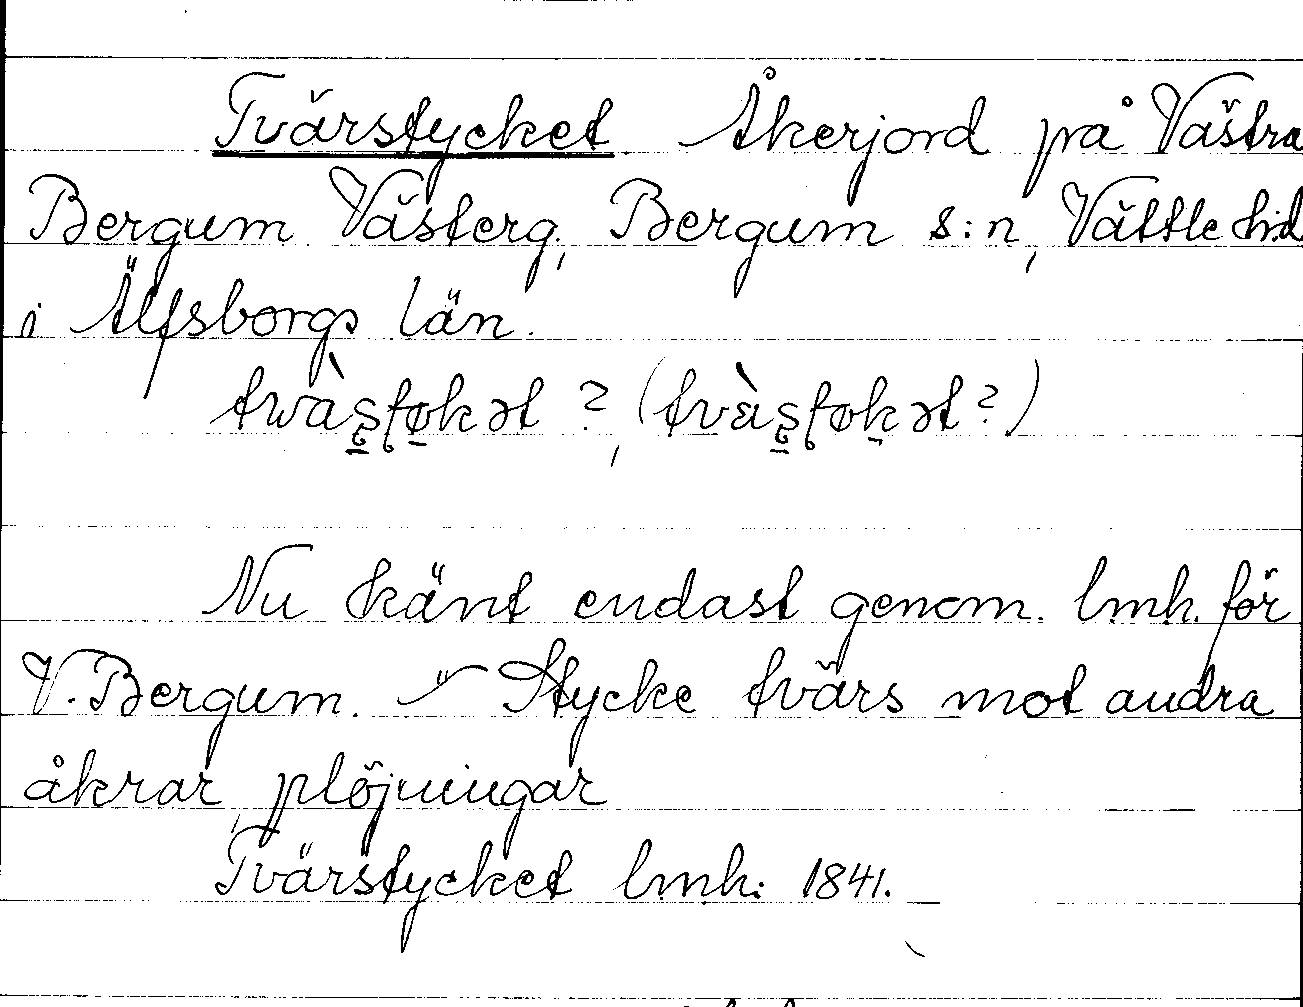 Tvärstycket Åkerjord på Västra
Bergum Västerg., Bergum s:n, Vättle hd
i Älfsborgs län.
Nu känt endast genom lmh. för
V. Bergum. Stycke tvärs mot andra
åkrar, plöjningar
Tvärstycket lmh. 1841.